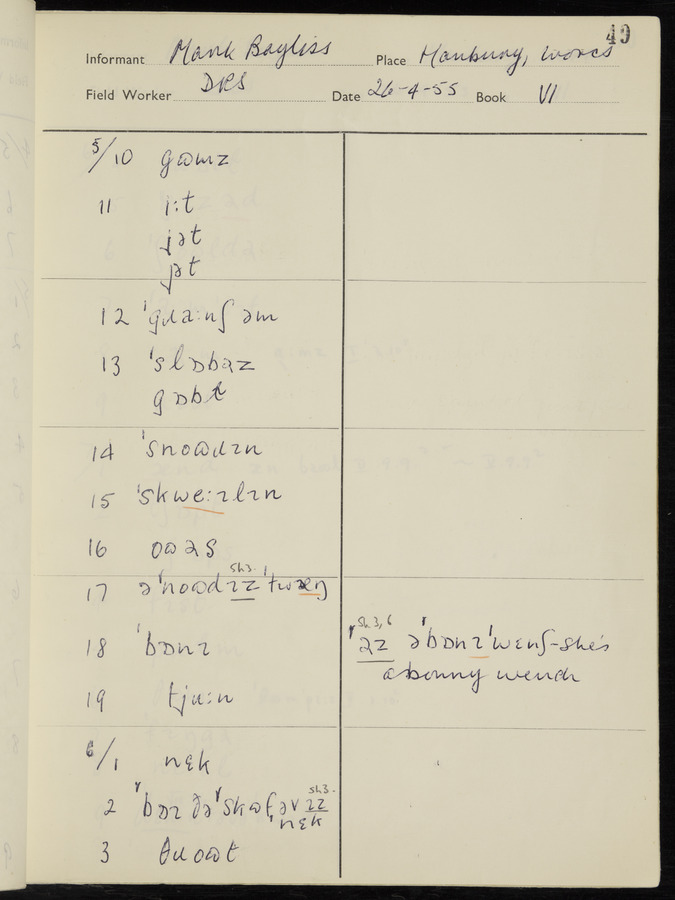 49
Informant Mark Bayliss Place Hanbury, Worcs
Field Worker DRS Date 26-4-55 Book VI
5/10 gɷmz
11 i:t
jət
12 ˈgɹa:nʃ əm
13 ˈslɒbəz
gɒbɫ
14 ˈsnoɷɹɪn
15 ˈskwe:ɪlɪn
16 oɷəs
sh3.
17 əˈnoɷdɪz ˈtwæŋ
18 ˈbɒnɪ
19 tju:n
6/1 nɛk
sh3.
2 ˈbɒɪ ðə ˈskɷf əv ɪz
nɛk
3 θɹoɷt
Sh 3, 6
əz əˈbɒnɪ ˈwɛnʃ - she's
a bonny wench